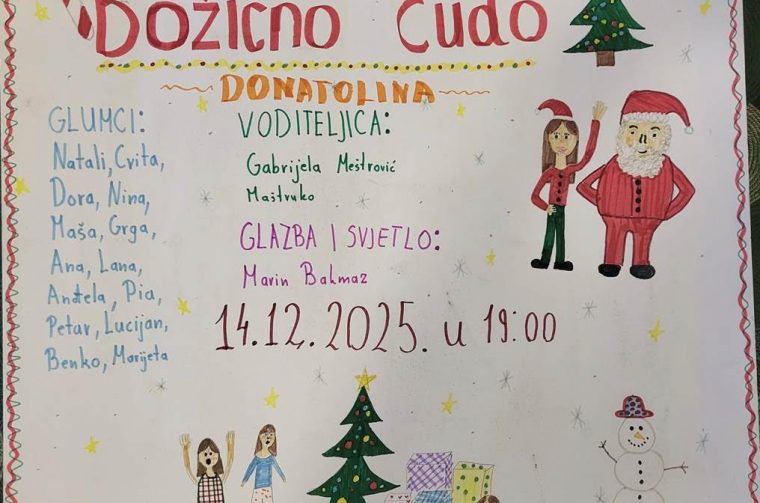 Božićno Čudo
DONATOLINA
GLUMCI:
Natali, Cvita,
Dora, Nina,
Maša, Grga,
Ana, Lana,
Anđela, Pia,
Petar, Lucijan,
Benko, Marijeta
VODITELJICA:
Gabrijela Meštrović
Maštruko
GLAZBA I SVJETLO:
Marin Bakmaz
14.12.2025. u 19:00